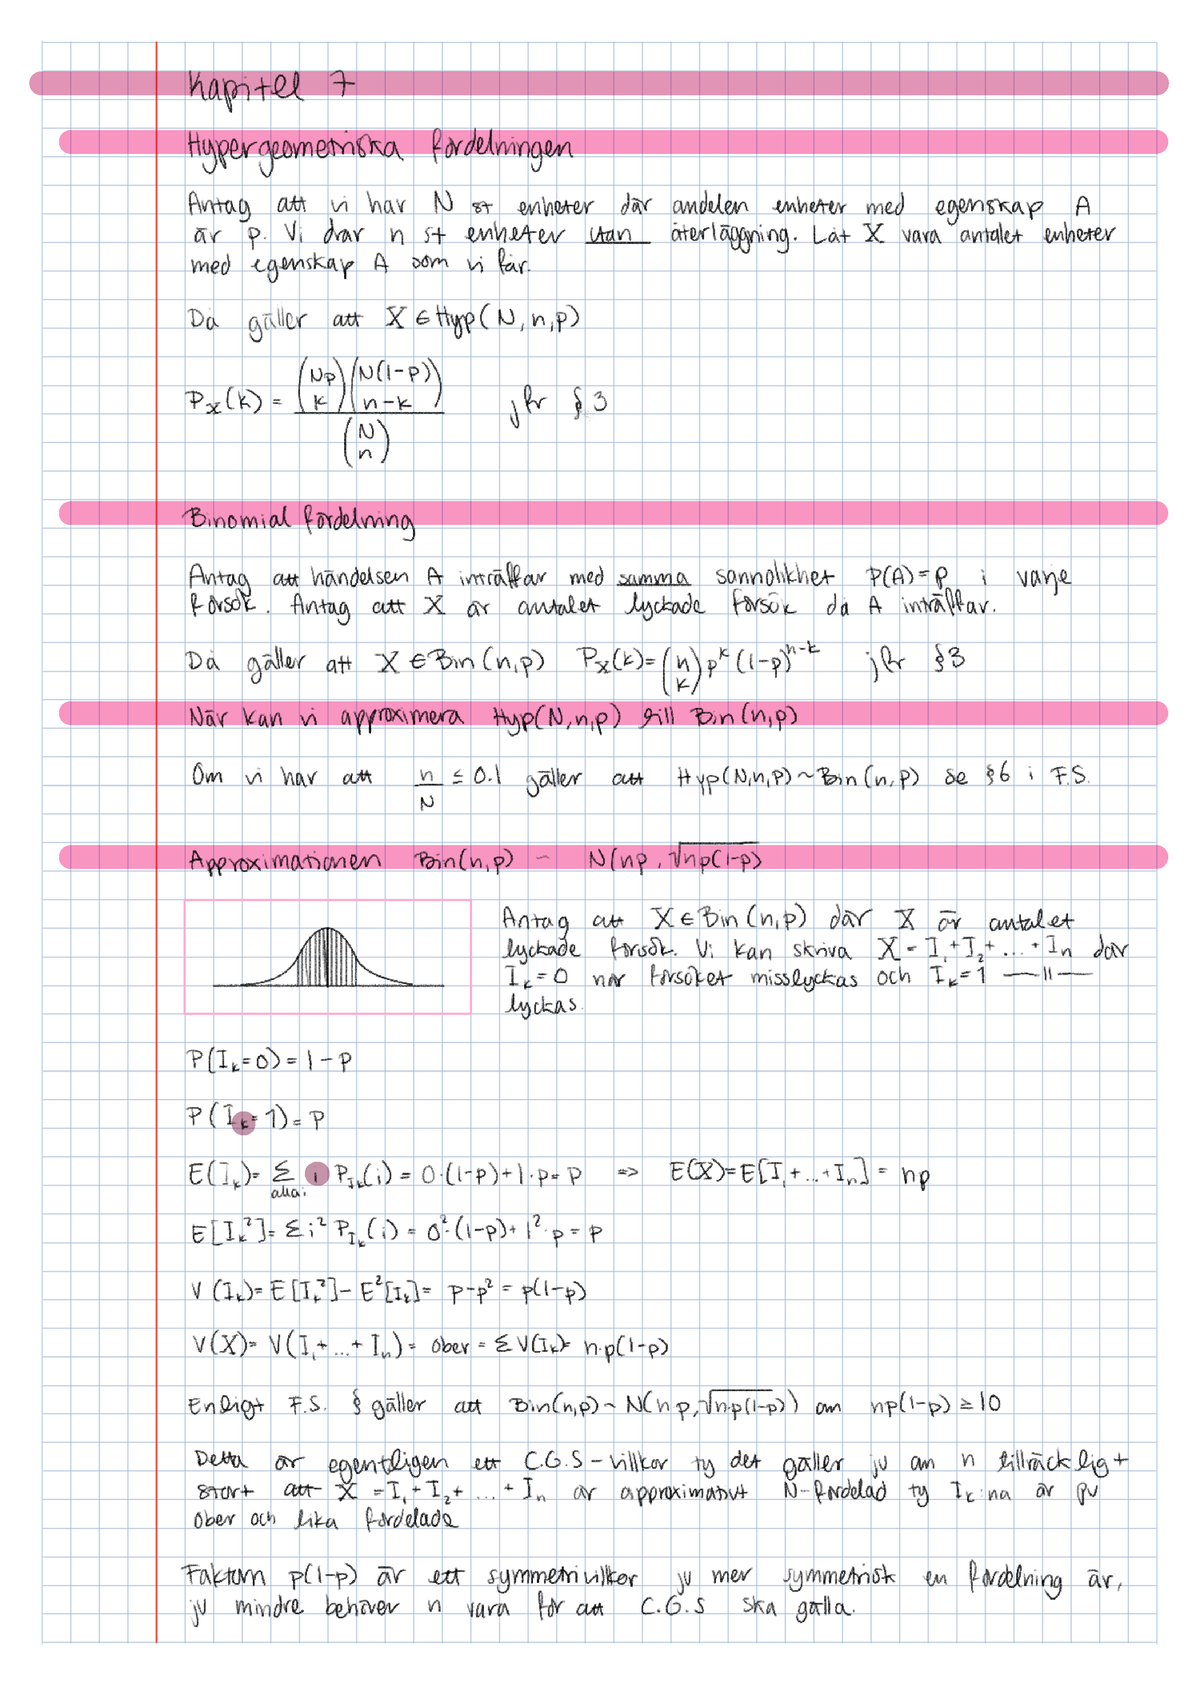 Kapitel 7
Hypergeometriska fördelningen
Antag att vi har N st enheter där andelen enheter med egenskap A
är p. Vi drar n st enheter utan återläggning. Låt X vara antalet enheter
med egenskap A som vi får.
Då gäller att X ∈ Hyp(N, n, p)
P_X(k) = \frac{\binom{Np}{k}\binom{N(1-p)}{n-k}}{\binom{N}{n}} jfr §3
Binomial fördelning
Antag att händelsen A inträffar med samma sannolikhet P(A)=p i varje
försök. Antag att X är antalet lyckade försök då A inträffar.
Då gäller att X ∈ Bin(n,p) P_X(k)=\binom{n}{k}p^k(1-p)^{n-k} jfr §3
När kan vi approximera Hyp(N,n,p) till Bin(n,p)
Om vi har att \frac{n}{N} ≤ 0.1 gäller att Hyp(N,n,p) ~ Bin(n,p) se §6 i F.S.
Approximationen Bin(n,p) ~ N(np, √np(1-p)
Antag att X ∈ Bin(n,p) där X är antalet
lyckade försök. Vi kan skriva X = I₁+I₂+...+In där
I_k=0 när försöket misslyckas och I_k=1 —॥—
lyckas.
P(I_k=0)=1-p
P(I_k=1)=p
E(I_k)= Σ_{alla i} i P_{I_k}(i) = 0·(1-p)+1·p=p ⇒ E(X)=E[I₁+...+I_n] = np
E[I_k²]= Σi² P_{I_k}(i) = 0²·(1-p)+1²·p=p
V(I_k)=E[I_k²]-E²[I_k]= p-p² = p(1-p)
V(X)= V(I₁+...+I_n)= ober = ΣV(I_k)= n·p(1-p)
Enligt F.S. § gäller att Bin(n,p) ~ N(np,√n·p(1-p)) om np(1-p) ≥ 10
Detta är egentligen ett C.G.S-villkor ty det gäller ju om n tillräckligt
stort att X = I₁+I₂+ ... + I_n är approximativt N-fördelad ty I_k:na är ju
ober och lika fördelade
Faktorn p(1-p) är ett symmetrivillkor ju mer symmetrisk en fördelning är,
ju mindre behöver n vara för att C.G.S ska gälla.